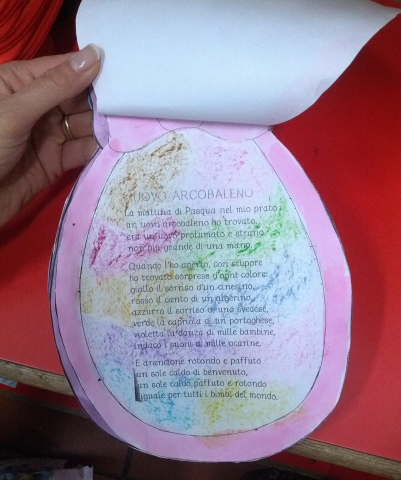 UOVO ARCOBALENO
La mattina di Pasqua nel mio prato
un uovo arcobaleno ho trovato,
era un uovo profumato e strano
non più grande di una mano.
Quando l'ho aperto, con stupore
ho trovato sorprese d'ogni colore:
giallo il sorriso d'un cinesino,
rosso il canto di un algerino,
azzurro il sorriso di uno svedese,
verde la capriola di un portoghese,
violetta la danza di mille bambine,
indaco i suoni di mille ocarine.
E arancione rotondo e paffuto
un sole caldo di benvenuto,
un sole caldo, paffuto e rotondo
uguale per tutti i bimbi del mondo.